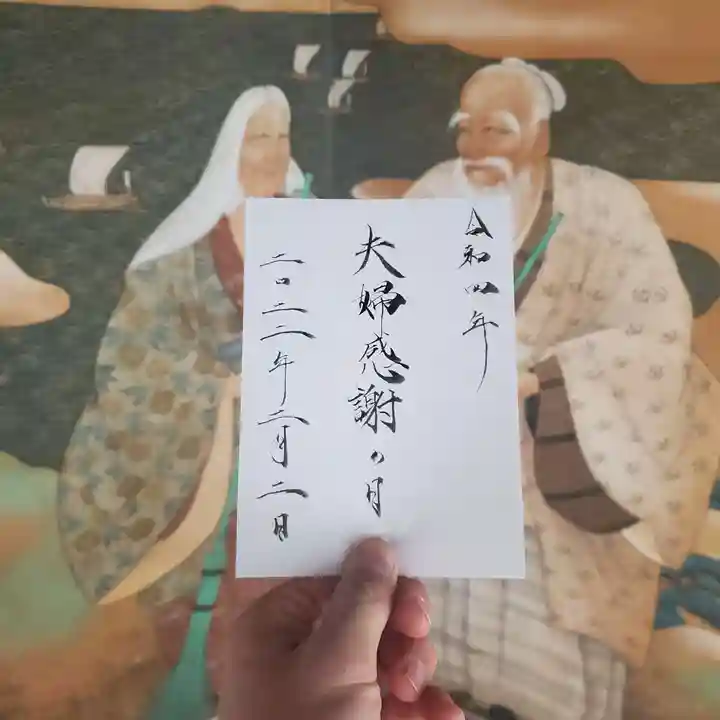 令和四年
夫婦感謝の月
二〇二二年二月二日